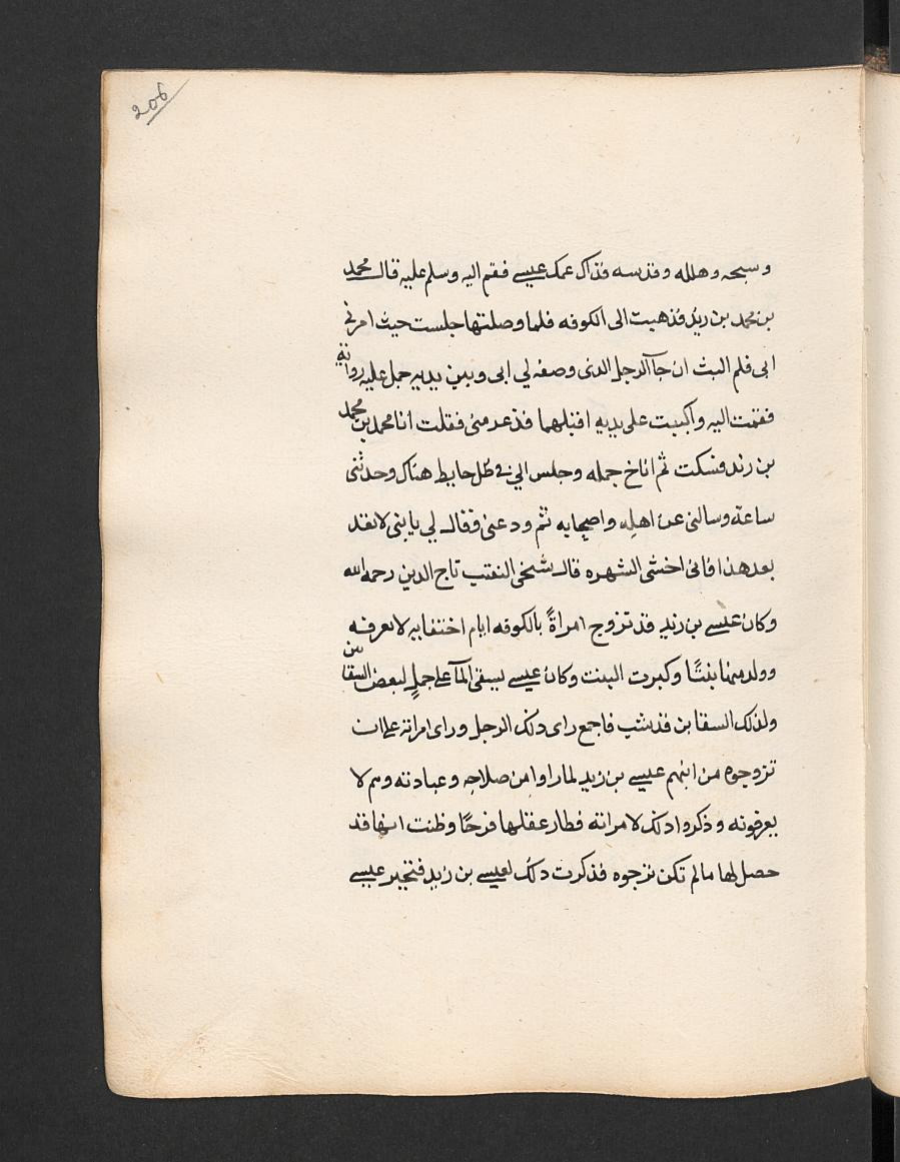 206
وسبحه وهلله وقدسه فذاك عمك عيسى فقم اليه وسلم عليه قال محمد
بن محمد بن زيد فذهبت الى الكوفه فلما وصلتها جلست حيث امرني
ابي فلم البث ان جآ الرجل الذى وصفه لي ابى وبين يديه جمل عليه راوية
فقمت اليه واكببت على يديه اقبلهما فذعر منى فقلت انا محمد بن محمد
بن زيد فسكت ثم اناخ جمله وجلس الي في ظل حايط هناك وحدثنى
ساعة وسالنى عن اهله واصحابه ثم ودعنى وقال لي يا بنى لا تعد
بعد هذا فانى اخشى الشهره قال شيخى النقيب تاج الدين رحمه الله
وكان عيسى بن زيد قد تزوج امراةً بالكوفه ايام اختفايه لا تعرفه
وولد منها بنتًا وكبرت البنت وكان عيسى يسقى المآ على جملٍ لبعض السقايين
ولذلك السقا بن قد شب فاجمع راى ذلك الرجل وراى امراته على ان
تزوجوه من ابنهم عيسى بن زيد لما راوا من صلاحه وعبادته وهم لا
يعرفونه وذكروا ذلك لامراته فطار عقلها فرحًا وظنت انها قد
حصل لها مالم تكن ترجوه فذكرت ذلك لعيسى بن زيد فتحير عيسى